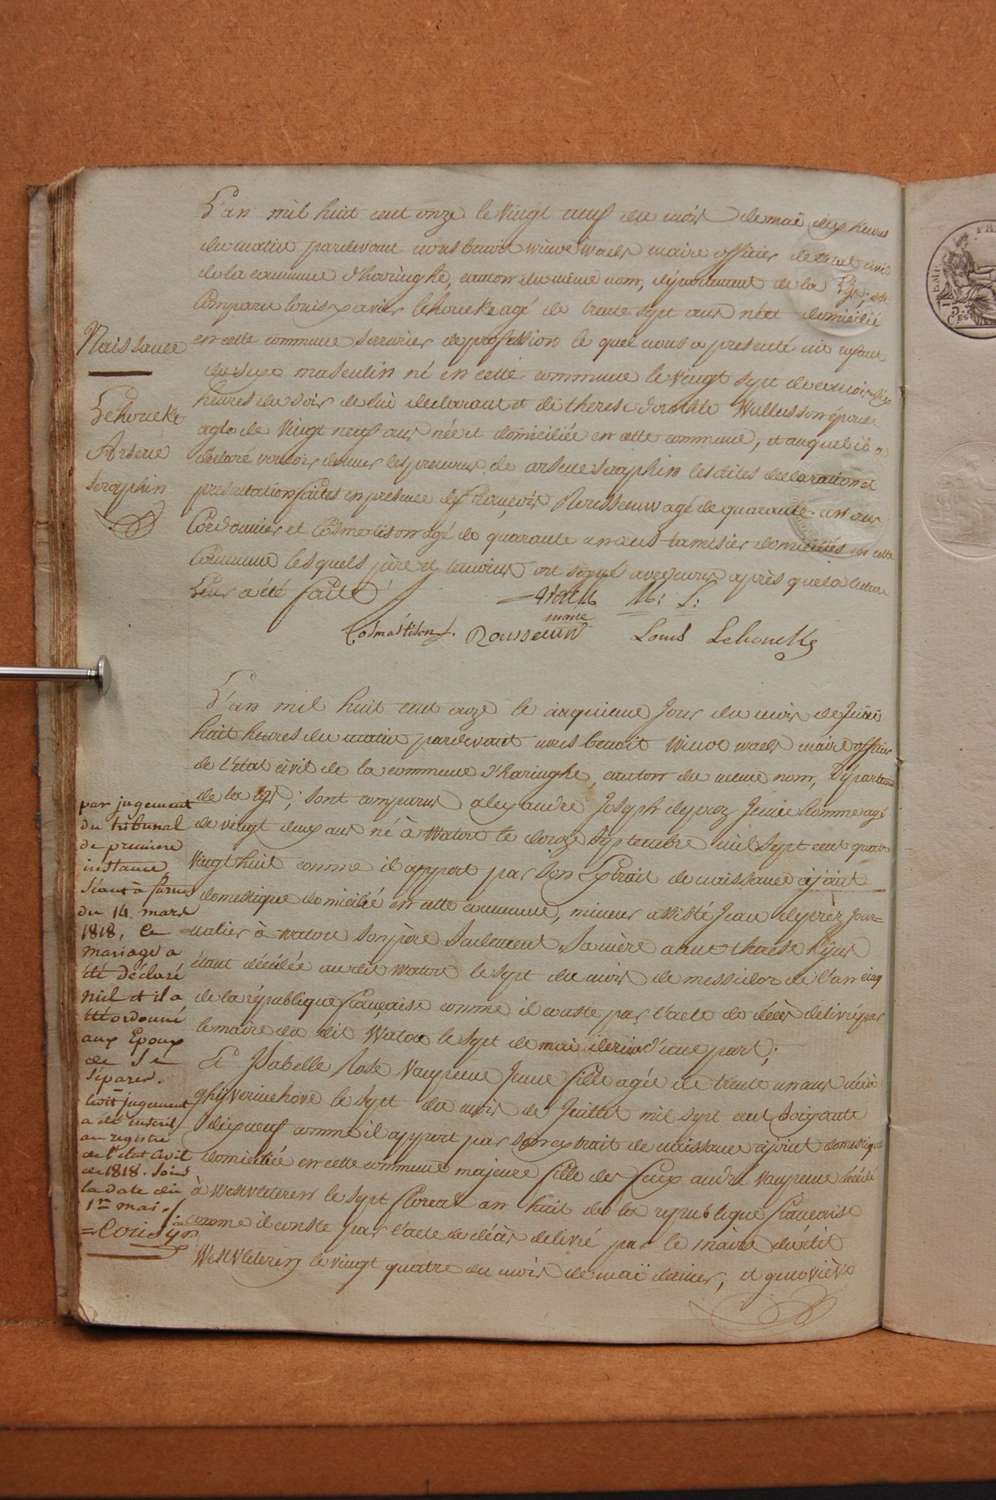 L'an mil huit cent onze le vingt neuf du mois de mai dix heures
du matin pardevant nous benoit winoc waels maire officier de l'état civil
de la commune d'haringhe, canton du même nom, département de la Lys, est
Comparu louis xavier lehoucke agé de trente sept ans né et domicilié
en cette commune serrurier de profession le quel nous a presenté un enfant
du sexe masculin né en cette commune le vingt sept de ce mois dix
heures du soir de lui declarant et de therese dorothée épouse
agée de vingt neuf ans née et domiciliée en cette commune, et auquel il a
déclaré vouloir donner les prenoms de arsene seraphin les dites declaration et
présentation faites en présence de françois Rousseuw agé de quarante un ans
Cordonnier et Cosme tison agé de quarante un ans tamisier domiciliés en cette
Commune lesquels père et temoins ont signé avec nous après que lecture
leur a été faite
Waels M: L:
maire
Cosma tison Rousseuw Louis Lehoucke
Naissance
Lehoucke
Arsene
seraphin
L'an mil huit cent onze le cinquieme jour du mois de juin
huit heures du matin pardevant nous benoit winoc waels maire officier
de l'état civil de la commune d'haringhe, canton du meme nom, département
de la Lys, sont comparus alexandre Joseph deprez jeune homme agé
de vingt deux ans né à Watou le douze septembre mil sept cent quatre
vingt huit comme il appert par son Extrait de naissance ajoint
domestique domicilié en cette commune, mineur assisté Jean deprez jour=
nalier à watou son père seulement sa mère anne therese
étant décédée au dit watou le sept du mois de messidor de l'an cinq
de la république française comme il conste par l'acte de décès delivré par
le maire du dit Watou le sept de mai dernier d'une part;
Et Isabelle Rose Vanpeene jeune fille agée de trente un ans née à
ghyverinchove le sept du mois de Juillet mil sept cent soixante
dixneuf comme il appert par son extrait de naissance ajoint domestique
domiciliée en cette commune majeure fille de feu andré vanpeene décédé
à Westvleteren le sept floreal an huit de la republique française
comme il conste par l'acte de décès delivré par le maire du dit
Westvleteren le vingt quatre du mois de maï dernier, et genoviève
par jugement
du tribunal
de première
instance
séant à furnes
du 14 mars
1818, le
mariage a
été déclaré
nul et il a
été ordonné
aux Epoux
de se
séparer.
Ledit jugement
a été inscrit
au registre
de l'état civil
de 1818. Sous
la date du
1er mai.